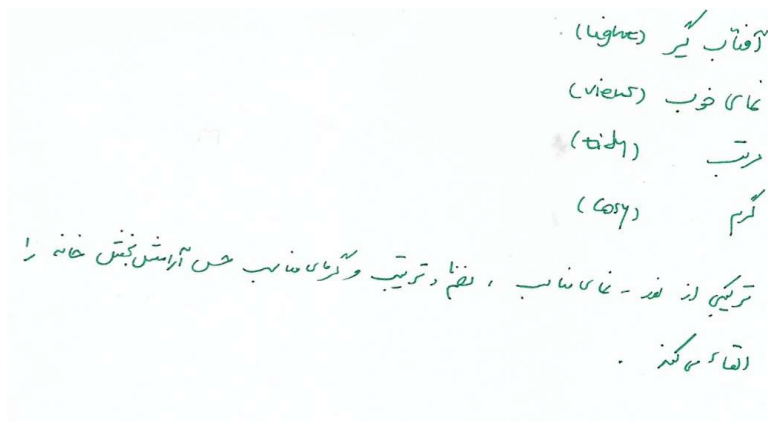 آفتاب گیر (light)
نمای خوب (view)
مرتب (tidy)
گرم (cosy)
ترکیبی از نور - نمای مناسب ، نظم و ترتیب و گرمای مناسب حس آرامش بخش خانه را
القاء می کند .